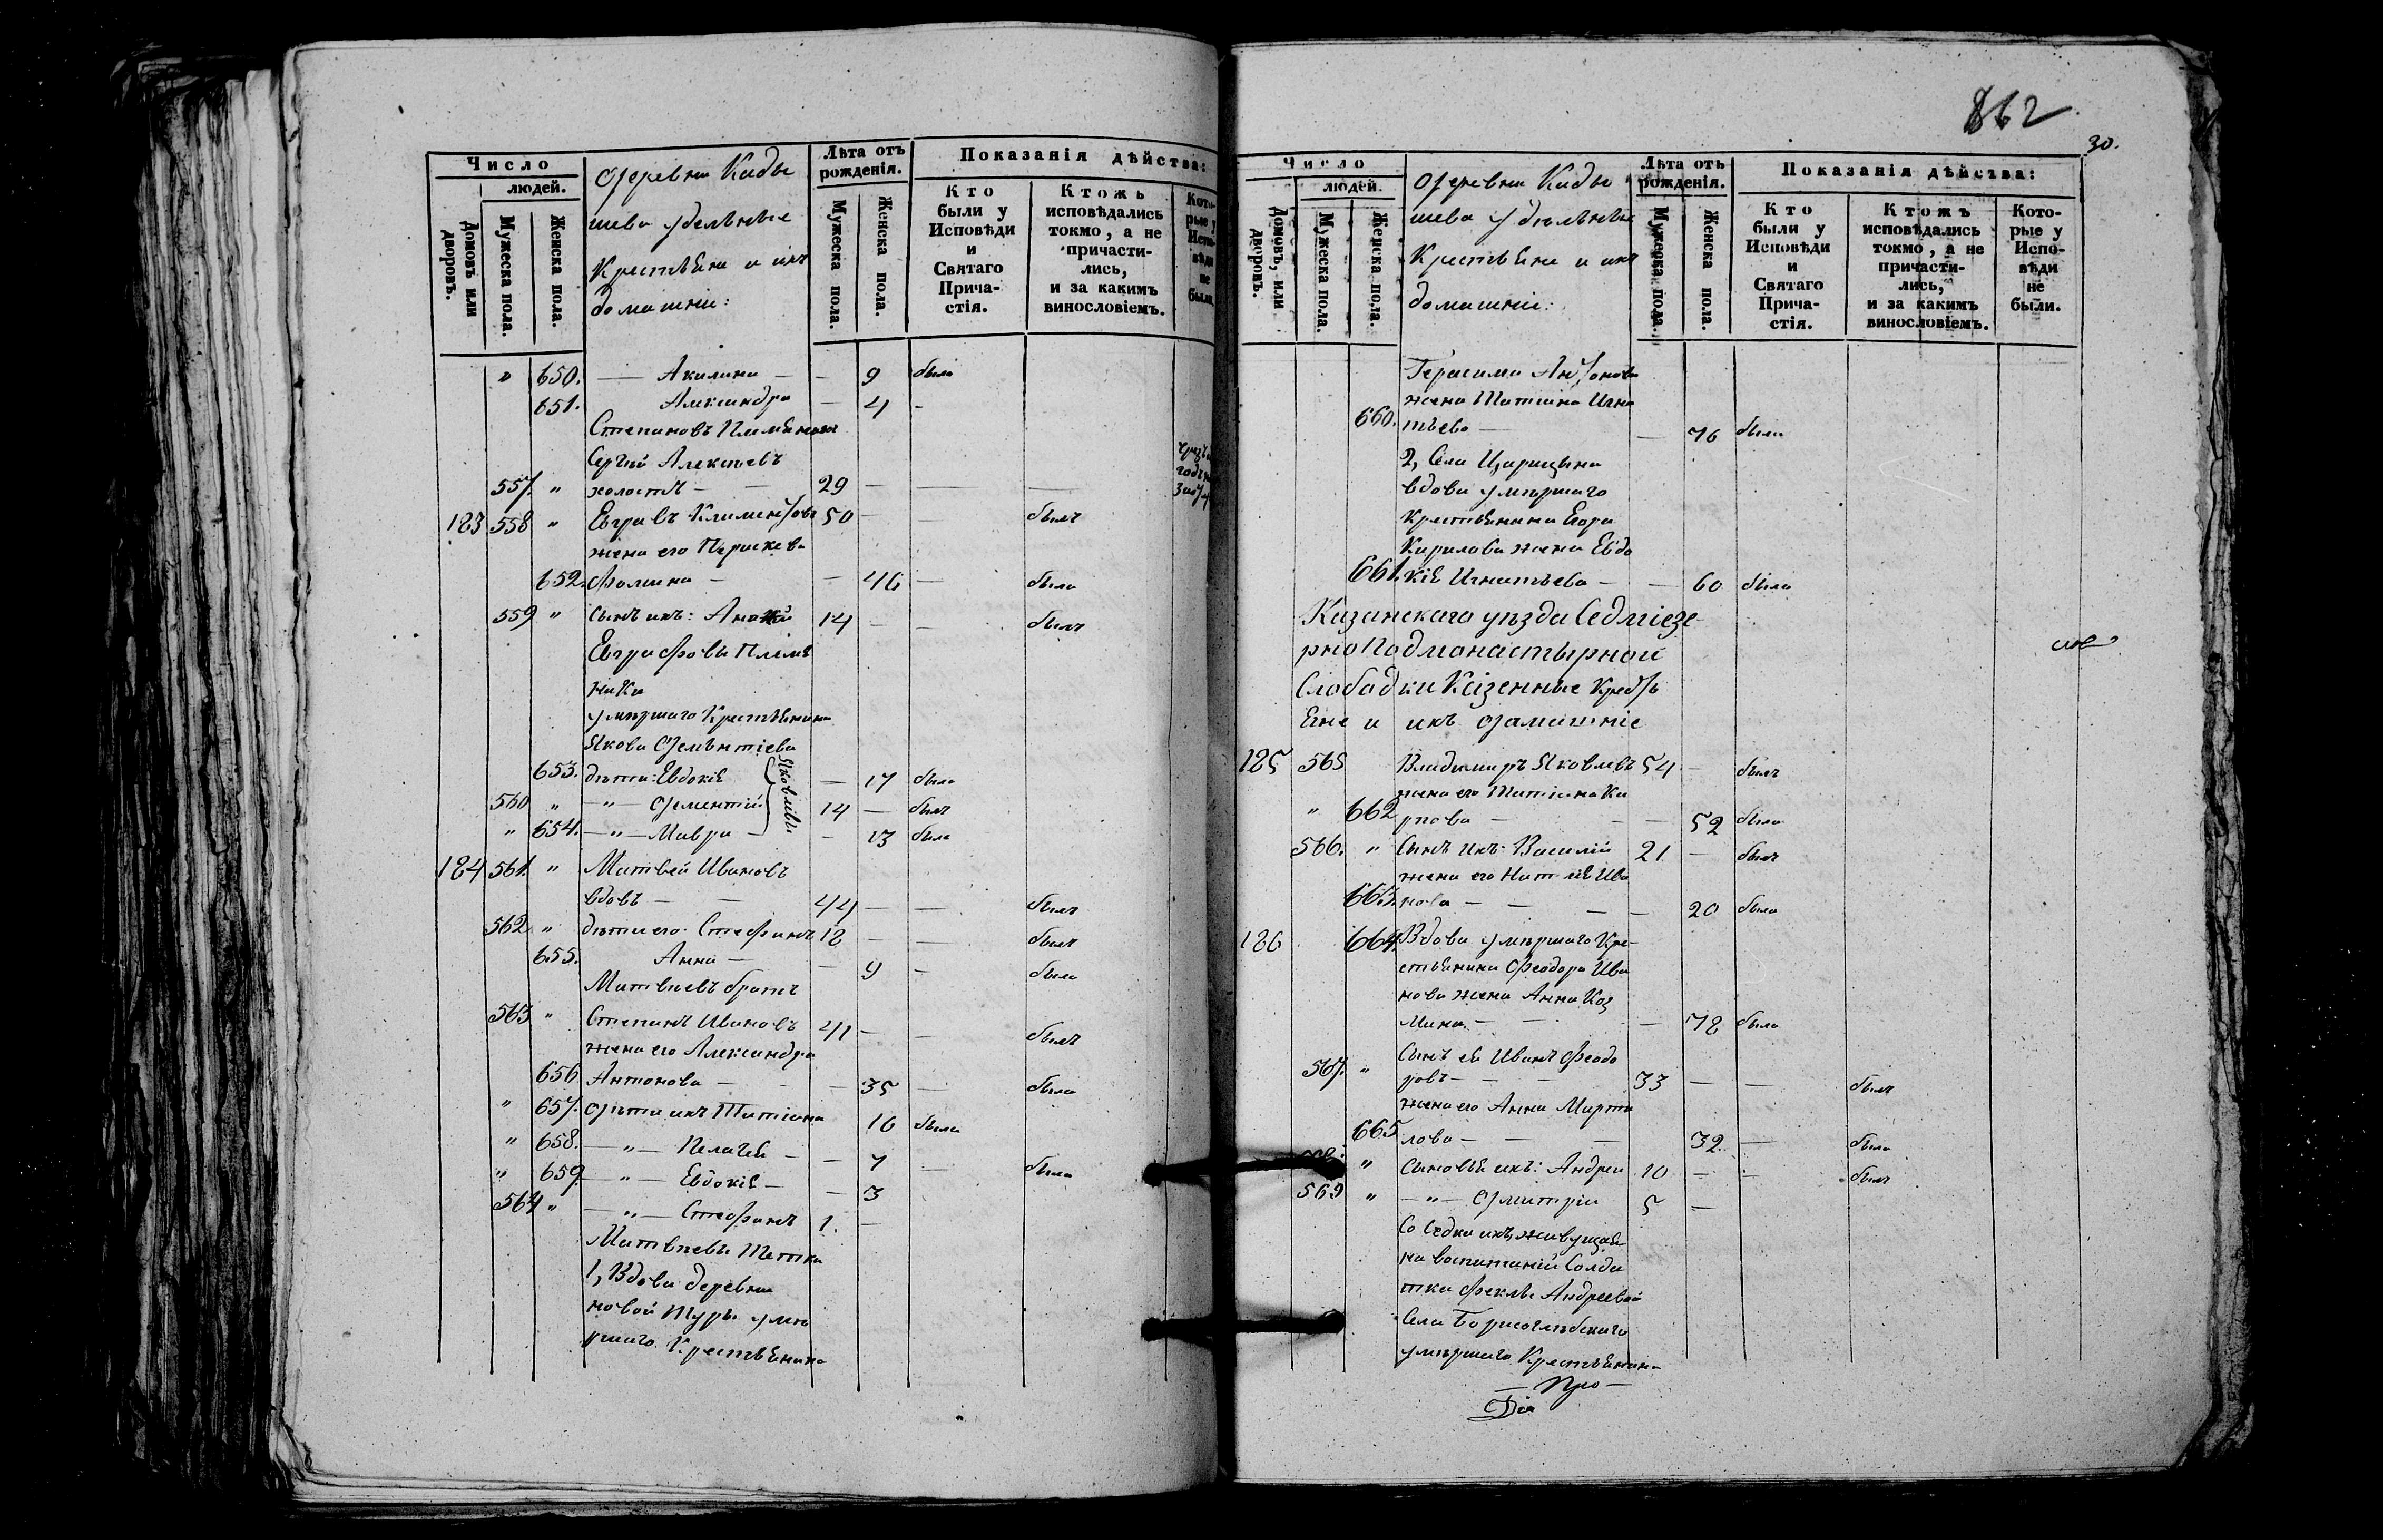 Число
людей.
Домовъ или дворовъ.
Мужеска пола.
Женска пола.
Деревни Кады
шева удельные
Крестьяне и ихъ
домашніи:
Лѣта отъ рожденія.
Мужеска пола.
Женска пола.
Показанія дѣйства:
Кто были у Исповѣди и Святаго Прича- стія.
Ктожь исповѣдались токмо, а не причасти- лись, и за какимъ винословіемъ.
Кото- рые у Испо- вѣди не были.
" 650. — Акилина — — 9 была
651. Александра — 4 -
Степановъ Племянникъ
Сергѣй Алексѣевъ
557. " холостъ — — 29 — — —
183 558 " Евграфъ Климентовъ 50 — — былъ
жена его Параскева
652. Фомина — — 46 — была
559 " сынъ ихъ: 14 — — былъ
Евграфовы Племя
ники
умершаго Крестьянина
Якова Дементіева
653. дѣти: Евдокія — 17 была
560 " — " — Дементій 14 — былъ
" 654. — " — Мавра — — 13 была
Яковлевы
184 561. " Матвей Ивановъ
вдовъ — — 44 — — былъ
562 " дѣти его: Стефанъ 18 — — былъ
655. Анна — — 9 — была
Матвѣевъ братъ
563 " Степанъ Ивановъ 41 — — былъ
жена его Александра
656 Антонова — — — 35 — была
" 657. Дѣти ихъ Татіана 16 была
" 658. — " — Пелагея — — 7 — была
" 659 — " — Евдокія — — 3
564 " — " — Стефанъ 1. —
Матвѣевы Тетки
1, Вдова деревни
новой Туры уме
ршаго Крестьянина
862
30.
Число
людей.
Домовъ, или дворовъ.
Мужеска пола.
Женска пола.
Деревни Кады
шева удельные
Крестьяне и ихъ
домашніи:
Лѣта отъ рожденія.
Мужеска пола.
Женска пола.
Показанія дѣйства:
Кто были у Исповѣди и Святаго Прича- стія.
Ктожъ исповѣдались токмо, а не причасти- лись, и за какимъ винословіемъ.
Кото- рые у Испо- вѣди не были.
Герасима Антонова
жена Татіана Игна
660. тьева — — 76 была
2, Села Царицына
вдова умершаго
Крестьянина Егора
Кирилова жена Евдо
661. кія Игнатьева — — 60 была
Казанскаго уѣзда Седміезе
рно Подмонастырной
Слободки Казенные Кресть
яне и ихъ Домашніе
185 565 Владимиръ Яковлевъ 54 — былъ
жена его Татіана Ка
" 662 рпова — — — 52 была
566. " Сынъ ихъ: Василій 21 — былъ
жена его Наталія Ива
663. нова — — — — 20 была
186 664. Вдова умершаго Кре-
стьянина Феодора Ива
нова жена Анна Коз
мина — — — 78 была
567. " Сынъ ея Иванъ Феодо
ровъ — — — 33 — — былъ
жена его Анна Марты
665 лова — — — 32. — была
" Сыновья ихъ: Андрей 10 — — былъ
569 " — " — Дмитрій 5 —
Соседки ихъ живущая
на воспитаніи Солда
тки Феклы Андреевой
Села Борисоглѣбскаго
умершаго Крестьянина
— Про —